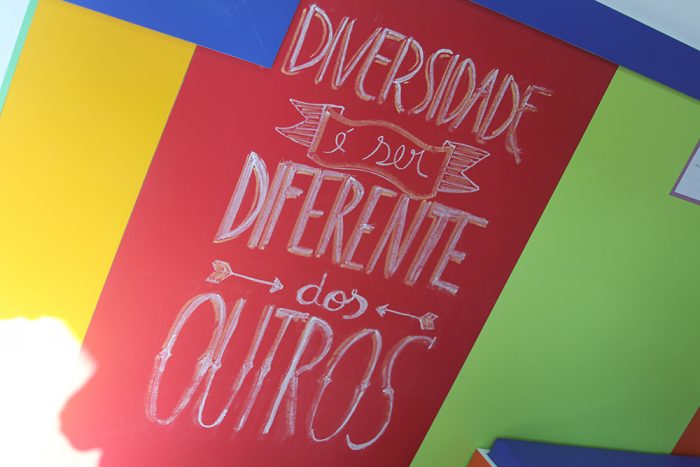 DIVERSIDADE
é ser
DIFERENTE
dos
OUTROS